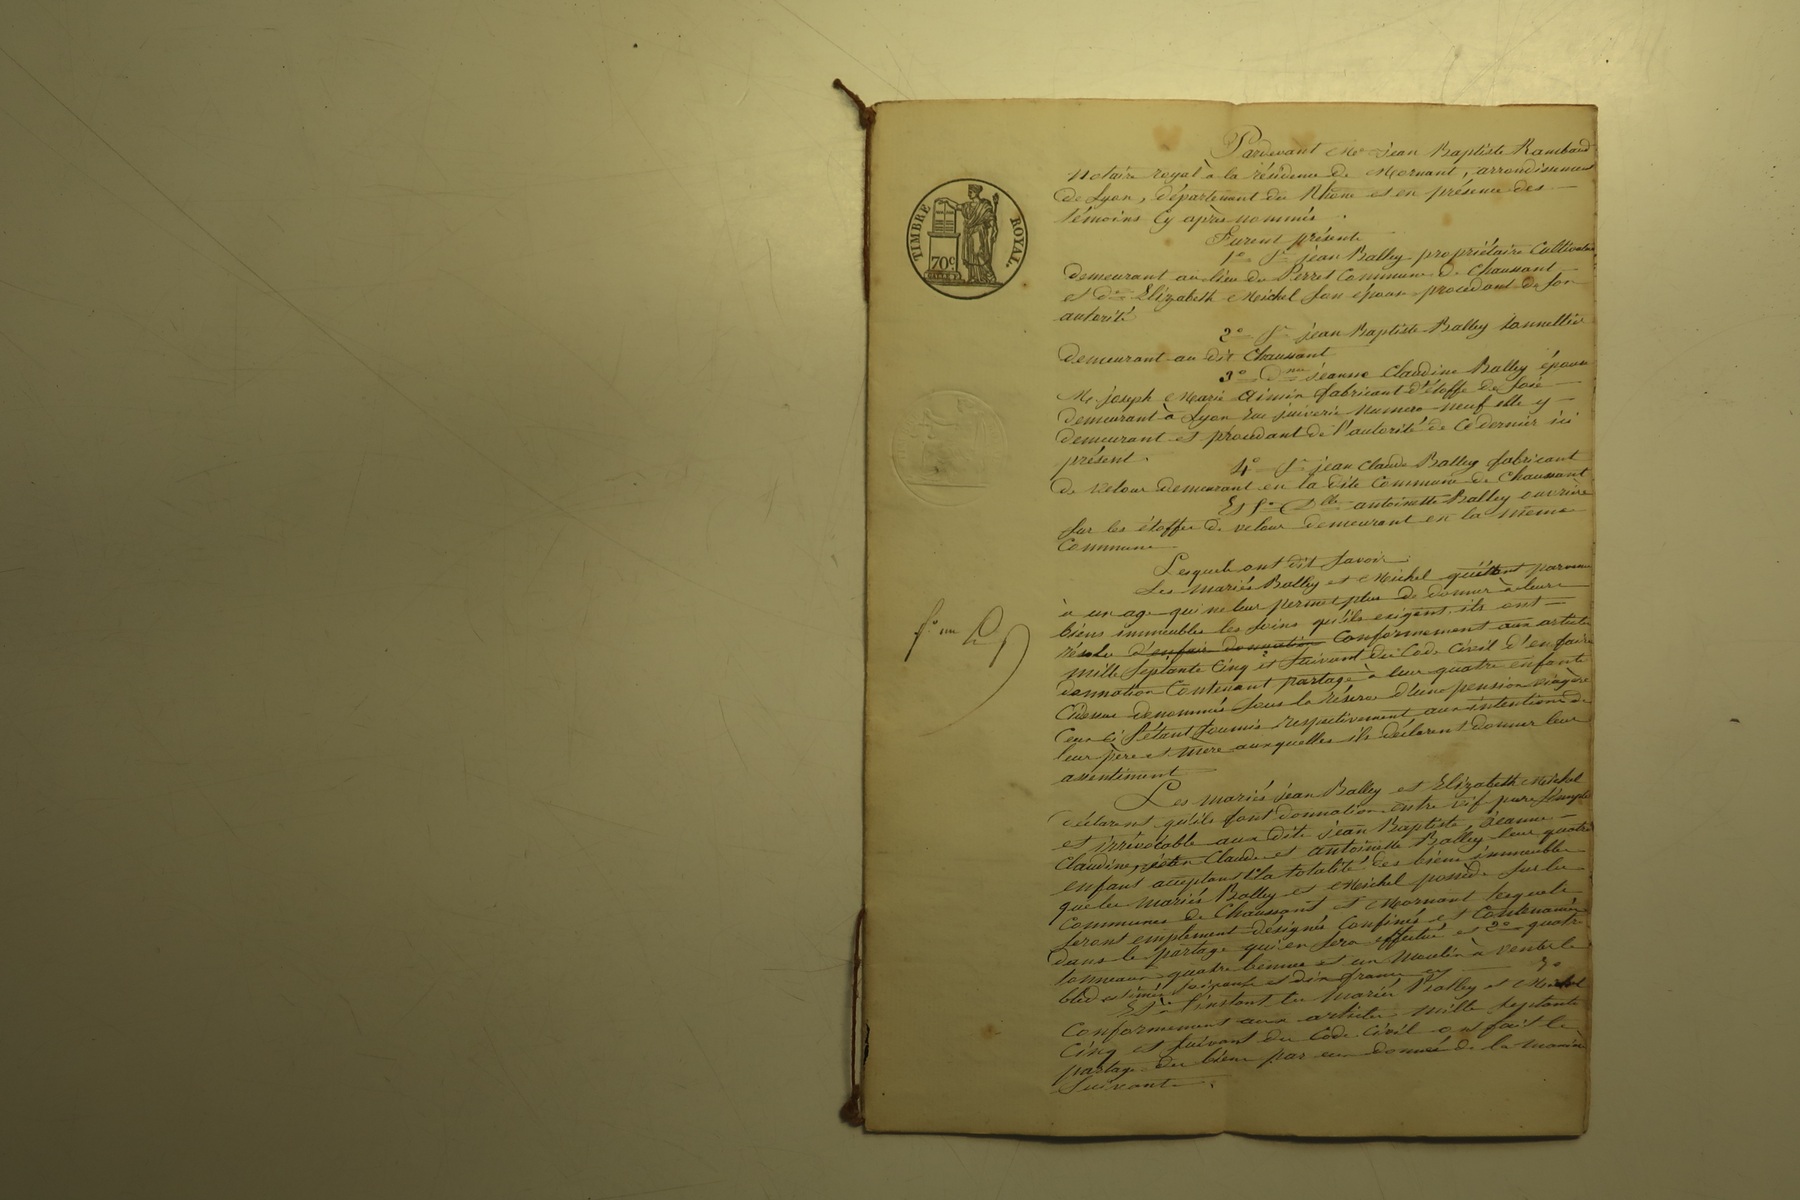 TIMBRE ROYAL.
70c
Pardevant Me jean Baptiste Rambaud
Notaire royal à la résidence de Mornant, arrondissement
de Lyon, département du Rhône et en présence des
témoins Cy après nommés.
Furent présent
1° Sr jean Balley propriétaire Cultivateur
demeurant au lieu du Perret Commune de Chaussant
et de Elizabeth Meichel son épouse procédant de son
autorité
2° Sr jean Baptiste Balley tonnellier
demeurant au dit Chaussant
3° Dme jeanne Claudine Balley épouse
M. joseph Marie aimin fabricant d'étoffe de soie
demeurant à Lyon rue juiverie numero neuf elle y
demeurant et procédant de l'autorité de Ce dernier ici
présent.
4° Sr jean Claude Balley fabricant
de velour demeurant en la dite Commune de Chaussant
Et 5° Dlle antoinette Balley ouvrière
sur les étoffes de velour demeurant en la même
Commune
Lesquels ont dit savoir:
Les mariés Balley et Meichel qu'étant parvenu
à un age qui ne leur permet plus de donner à leurs
biens immeubles les soins qu'ils exigent, ils ont
résolu d'en faire donnation Conformement aux articles
mille septante Cinq et suivant du Code Civil d'en faire
donnation Contenant partage à leur quatre enfants
Cidessus dénommés sous la réserve d'une pension viagère
Ceux Ci s'étant soumis respectivement aux intentions de
leur père et mère auxquelles ils déclarent donner leur
assentiment
Les mariés jean Balley et Elizabeth Meichel
déclarent qu'ils font donnation entre vif pure simple
et irrévocable aux dits jean Baptiste, jeanne
Claudine, jean Claude et antoinette Balley leur quatre
enfans acceptans la totalité des biens immeubles
que les mariés Balley et Meichel possède sur les
Communes de Chaussant et Mornant lesquels
seront emplement désignés Confinés et Contenancés
dans le partage qui en sera effectué et 2° quatre
tonneaux quatre bennes et un moulin à venter le
bled estimés soixante et dix francs 70
Et à l'instant les mariés Balley et Meichel
Conformement aux articles mille septante
Cinq et suivant du Code Civil ont fait le
partage des biens par eux donnés de la manière
suivante.